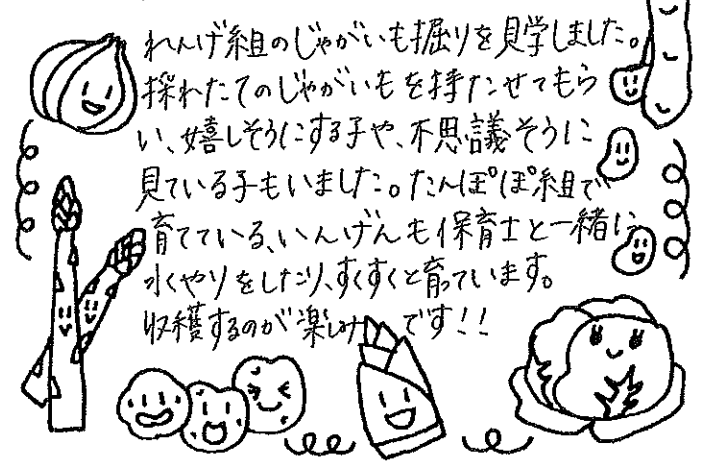 れんげ組のじゃがいも掘りを見学しました。
採れたてのじゃがいもを持たせてもら
い、嬉しそうにする子や、不思議そうに
見ている子もいました。たんぽぽ組で
育てている、いんげんも保育士と一緒に
水やりをしたり、すくすくと育っています。
収穫するのが楽しみです!!